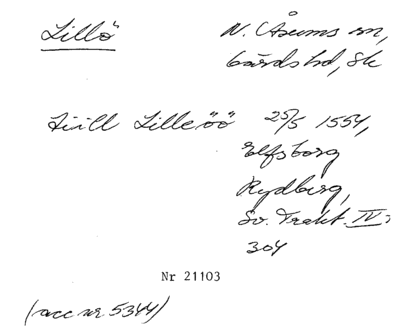 Lillö
N. Åsums sn,
Gärds hd, Sk
Tiill Lilleöö 25/5 1554,
Elfsborg
Rydberg,
Sv. Trakt. IV:
304
Nr 21103
(acc nr 5344)